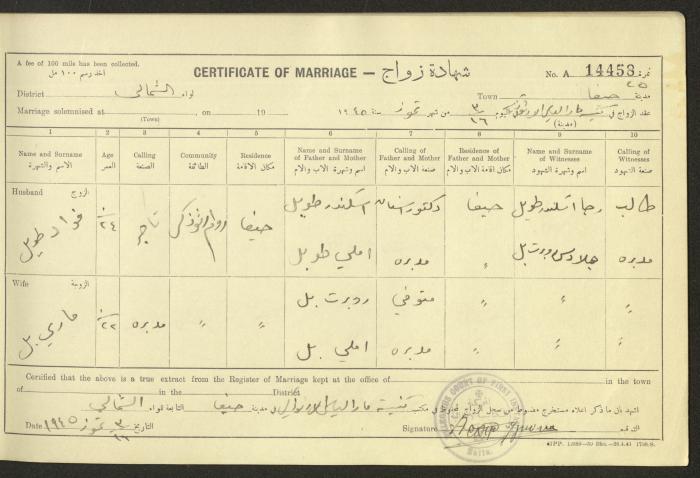 A fee of 100 mils has been collected.
أخذ رسم ١٠٠ مل
CERTIFICATE OF MARRIAGE — شهادة زواج
No. A 14453 نمرة
District لواء الشمالي
Town حيفا مدينة
Marriage solemnised at , on 19 ١٩٤٥ سنة تموز من شهر
(Town)
عقد الزواج في كنيسة مار الياس
(مدينة)
1 2 3 4 5 6 7 8 9 10
Name and Surname Age Calling Community Residence Name and Surname of Father and Mother Calling of Father and Mother Residence of Father and Mother Name and Surname of Witnesses Calling of Witnesses
الاسم والشهرة العمر الصنعة الطائفة مكان الاقامة اسم وشهرة الاب والام صنعة الاب والام مكان اقامة الاب والام اسم وشهرة الشهود صنعة الشهود
Husband الزوج
فؤاد طويل ٢٤ تاجر روم ارثوذكس حيفا اسكندر طويل دكتور اسنان حيفا رجا اسكندر طويل طالب
املي طويل مدبره " مدبره
Wife الزوجة
ماري بل ٢٢ مدبره " " روبرت بل متوفي " " "
املي بل مدبره " " "
Certified that the above is a true extract from the Register of Marriage kept at the office of in the town
of in the District
اشهد بان ما ذكر اعلاه مستخرج مضبوط من سجل الزواج المحفوظ في مكتب كنيسة مار الياس في مدينة حيفا التابعة للواء الشمالي
Date ١٩٤٥ تموز التاريخ
Signature التوقيع
Haifa.
GPP. 12089—50 Bks.—26.4.41